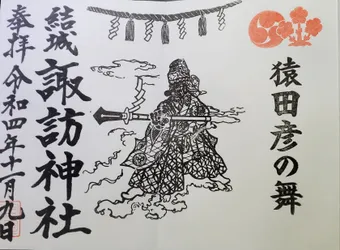 猿田彦の舞
結城
諏訪神社
奉拝
令和四年十一月九日